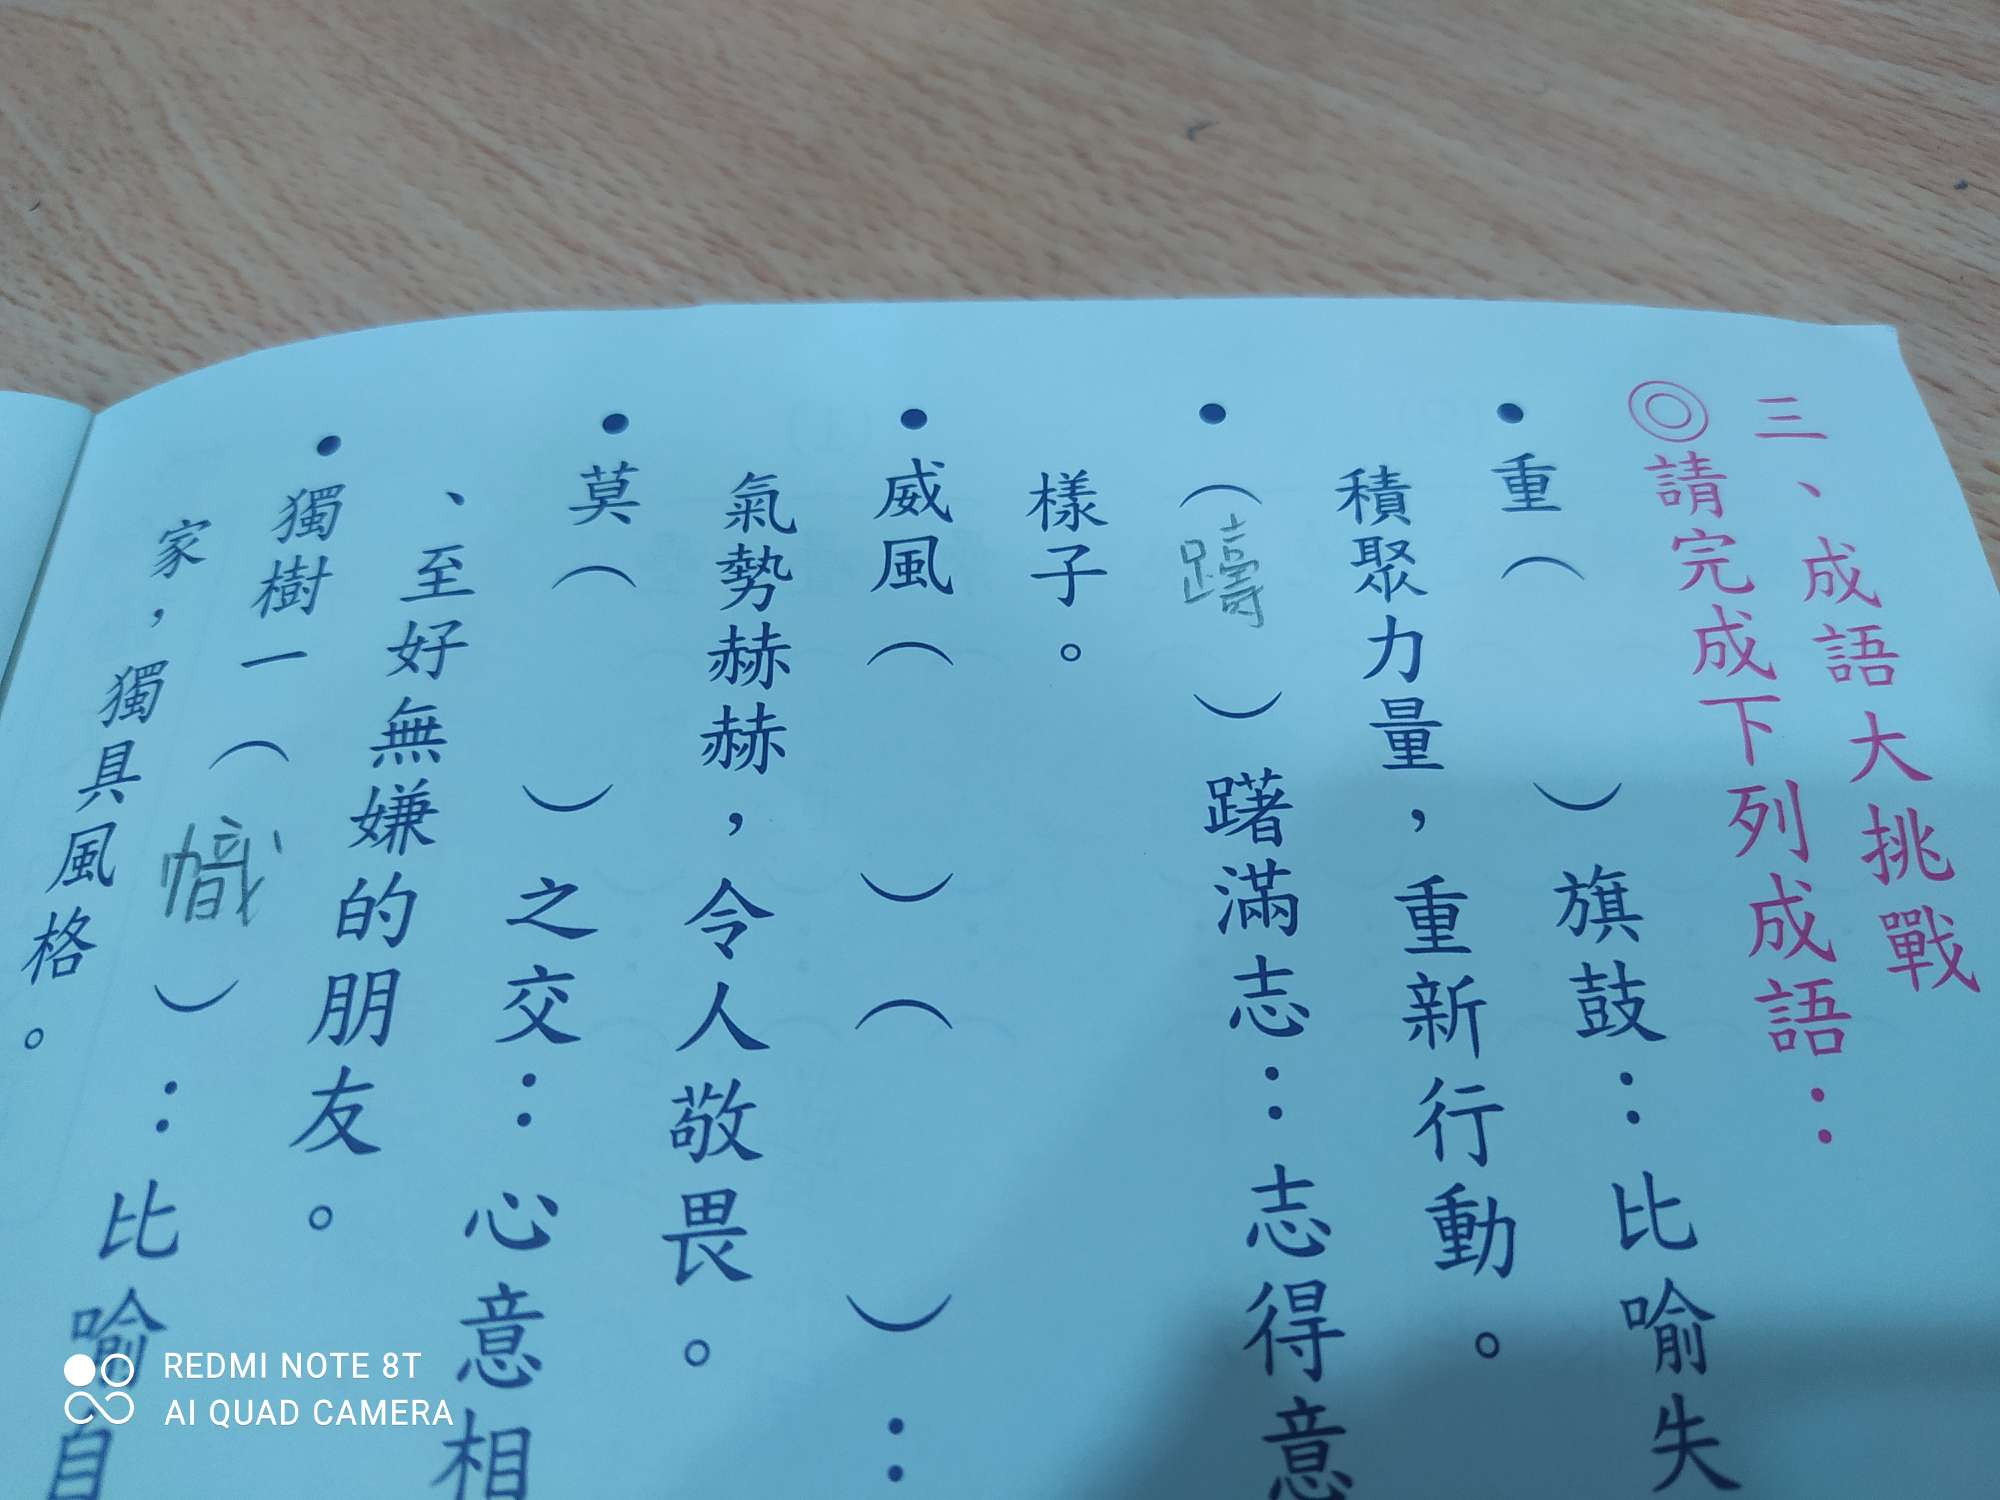 三、成語大挑戰
◎請完成下列成語：
•重（ ）旗鼓：比喻失
積聚力量，重新行動。
•（躊）躇滿志：志得意
樣子。
•威風（ ）（ ）：
氣勢赫赫，令人敬畏。
•莫（ ）之交：心意相
、至好無嫌的朋友。
•獨樹一（幟）：比喻自
家，獨具風格。
REDMI NOTE 8T
AI QUAD CAMERA